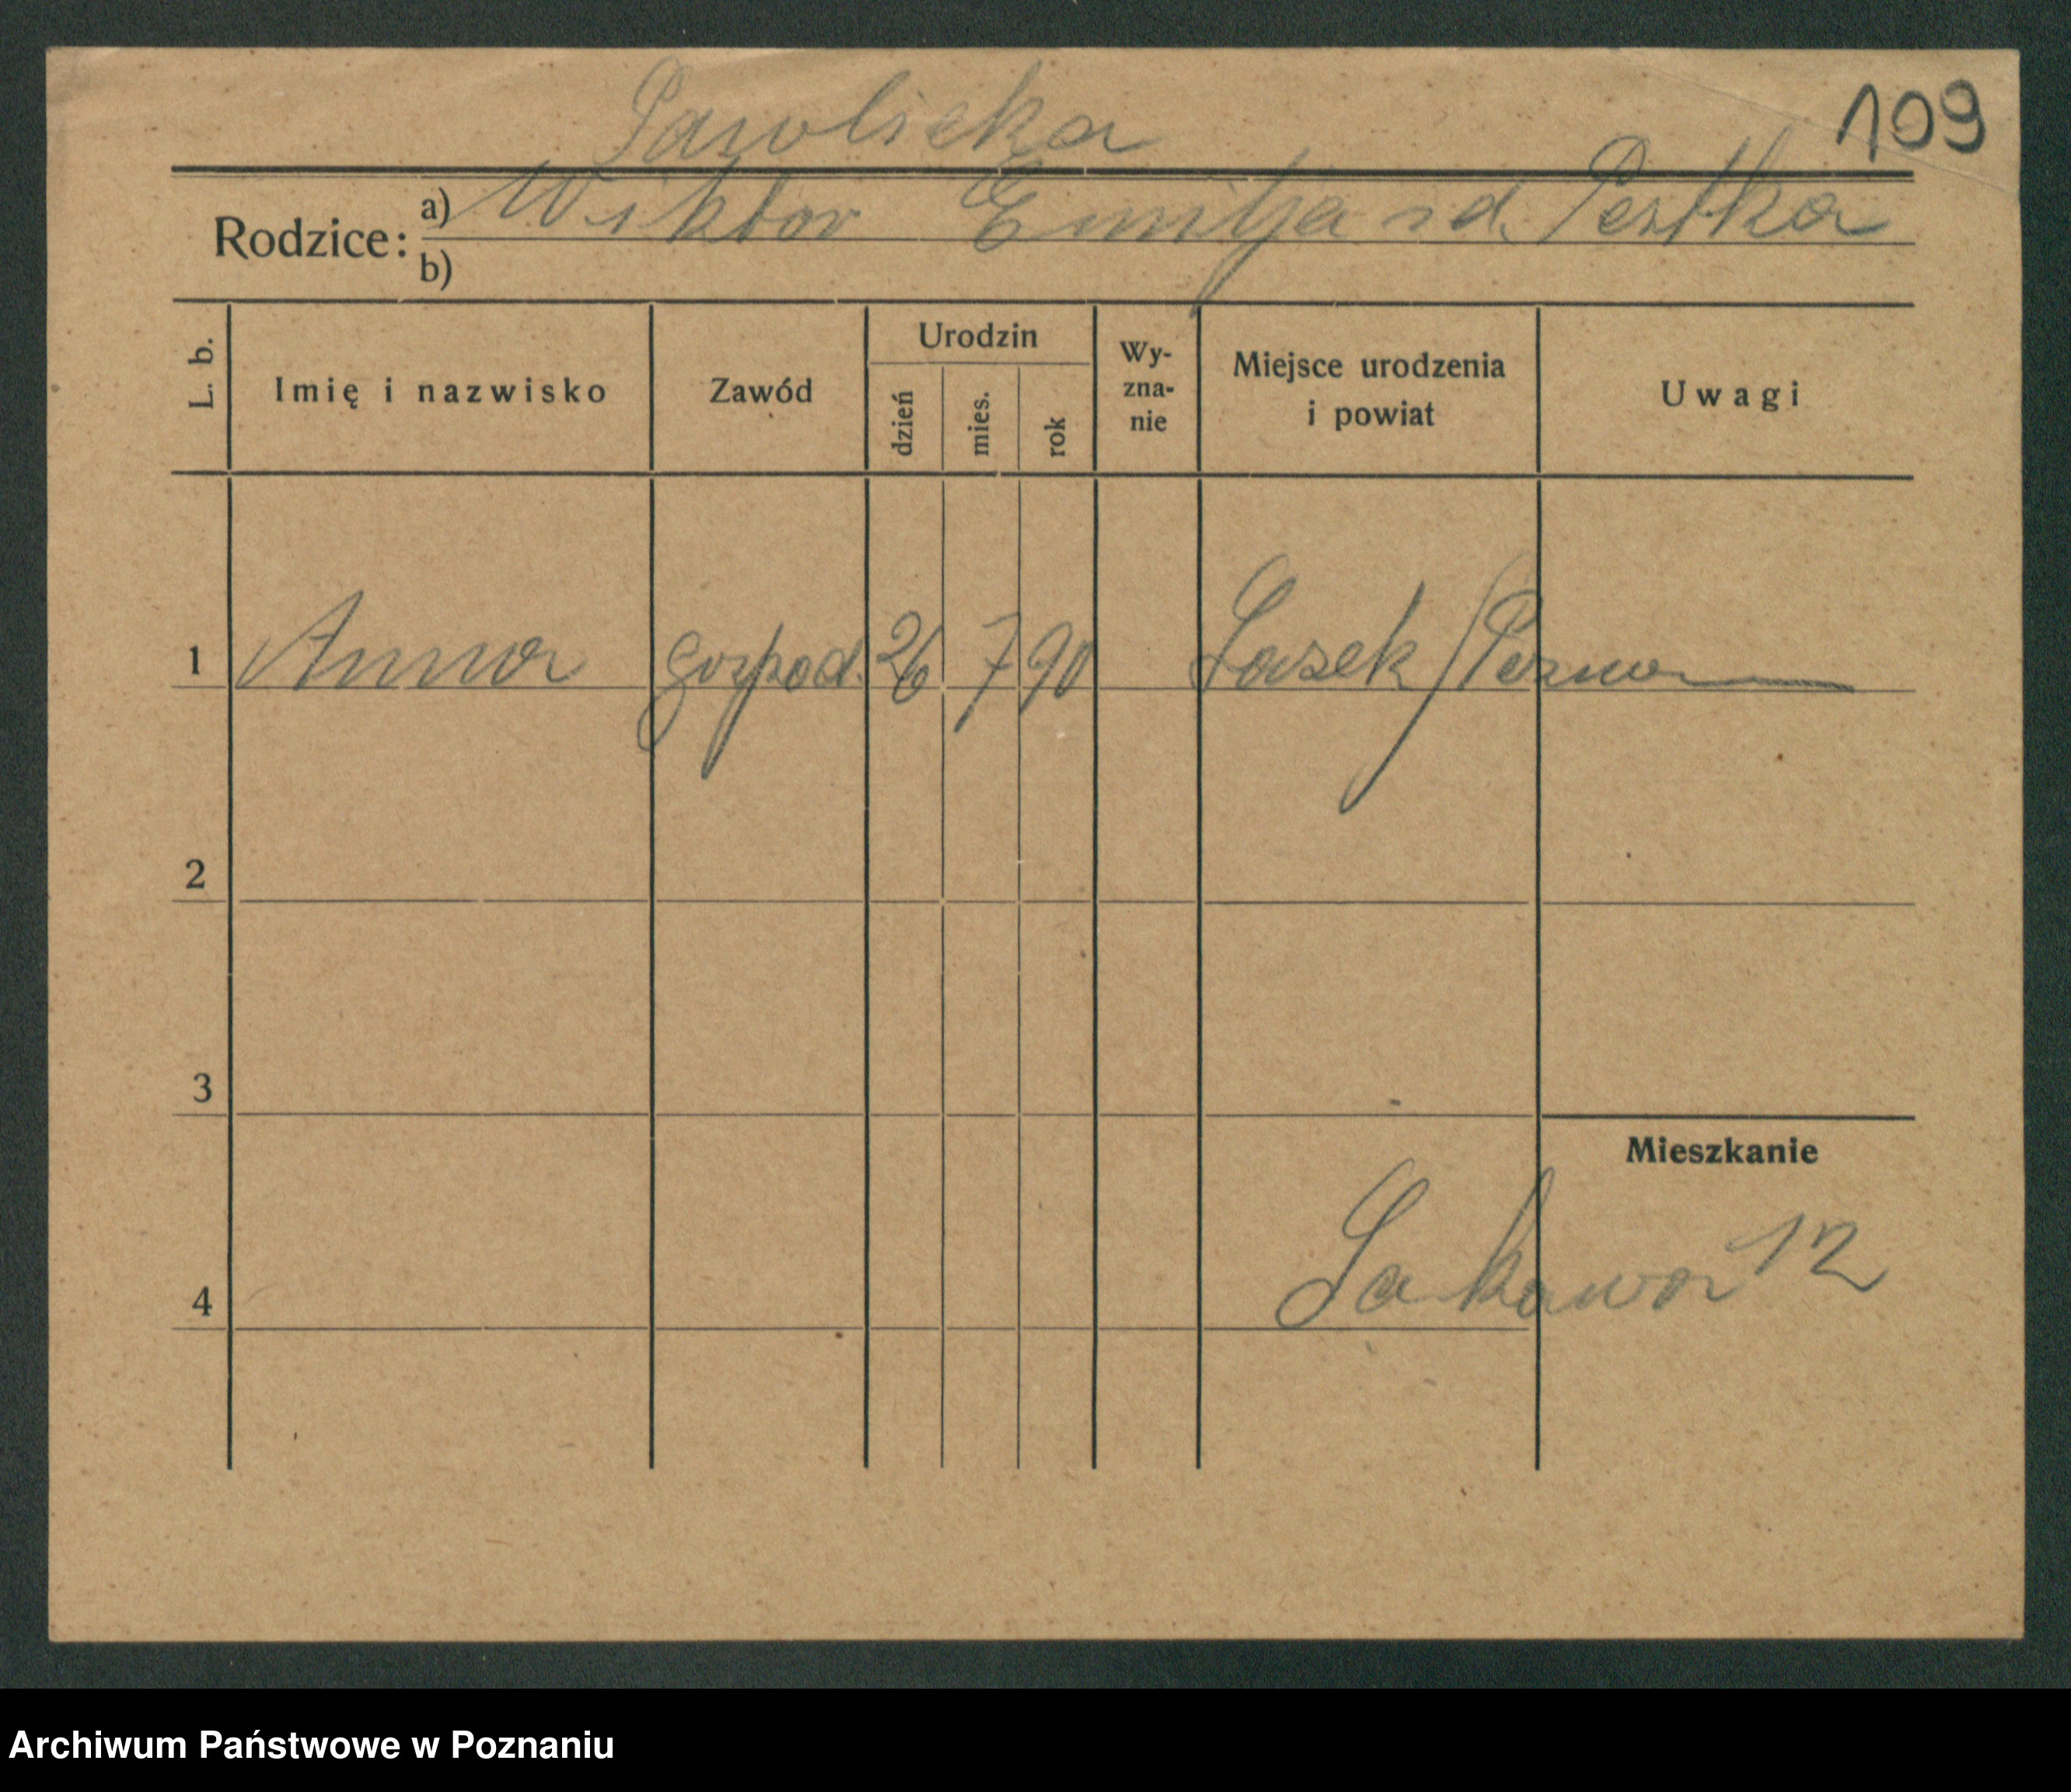 109
Pawlicka
Rodzice: a) Wiktor Emilja z d. Pertka
b)
L. b. Imię i nazwisko Zawód Urodzin dzień mies. rok Wy-zna-nie Miejsce urodzenia i powiat Uwagi
1 Anna gospod. 26 7 90 Lasek / Poznań
2
3
Mieszkanie
4 Łąkowa 12
Archiwum Państwowe w Poznaniu